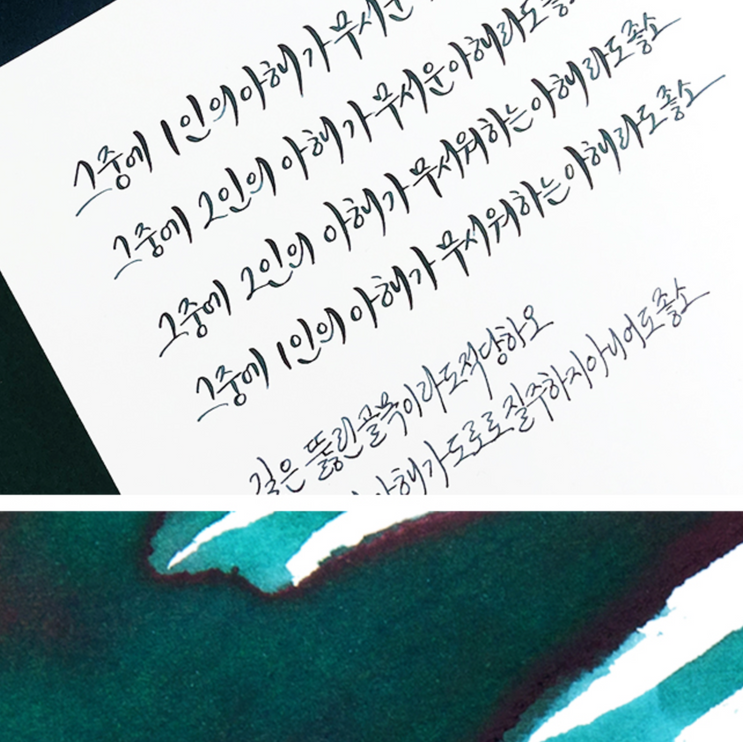 그중에 1인의 아해가 무서운
그중에 2인의 아해가 무서운 아해라도 좋
그중에 2인의 아해가 무서워하는 아해라도 좋소
그중에 1인의 아해가 무서워하는 아해라도 좋소
길은 뚫린 골목이라도 적당하오
아해가 도로로 질주하지 아니하여도 좋소